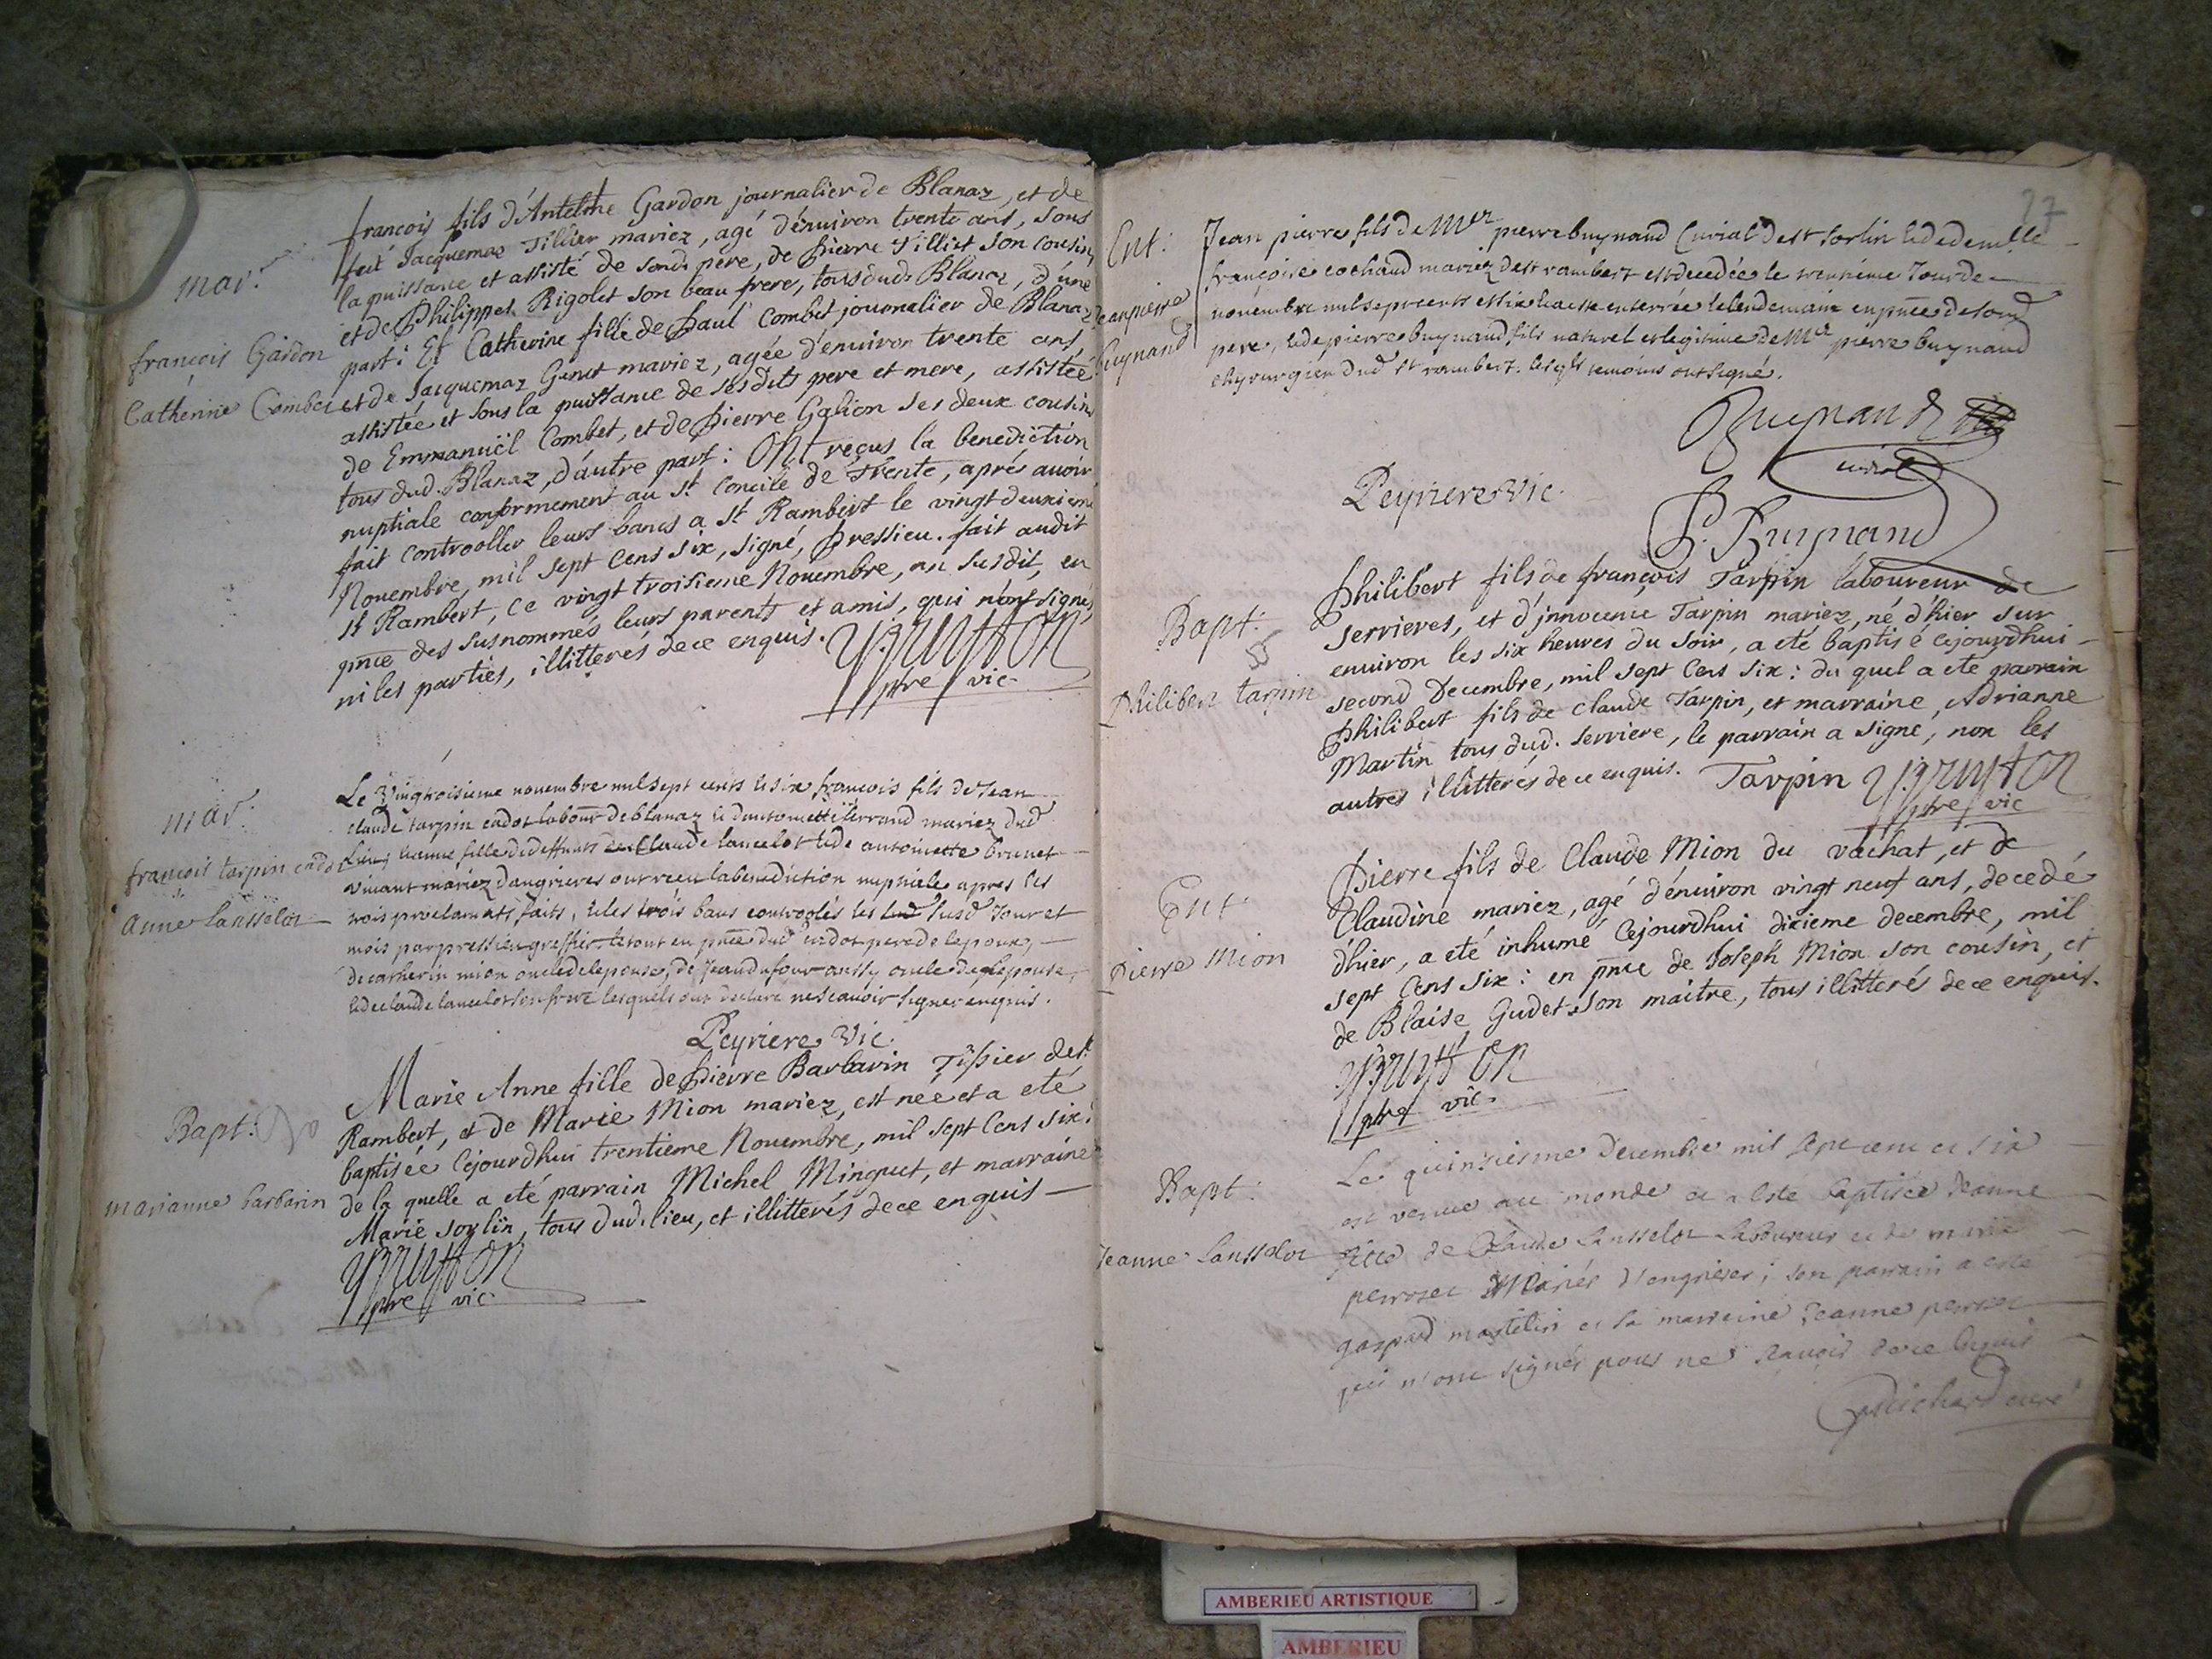 mar.
françois Gardon
Catherine Combet
françois fils d'Antelme Gardon journalier de Blanaz, et de
feüe Jacquemaz Tillier mariez, agé d'énuiron trente ans, sous
la puissance et assisté de sond. père, de Pierre Tilliet son cousin,
et de Philippes Rigolet son beau frere, tous dud. Blanaz, d'une
part: Et Catherine fille de Paul Combet journalier de Blanaz
et de Jacquemaz Genet mariez, agée d'enuiron trente ans,
assistée et sous la puissance de sesdits pere et mere, assistée
de Emmanuël Combet, et de Pierre Galion ses deux cousins
tous dud. Blanaz, d'autre part: Ont reçus la benediction
nuptiale conformement au St Concile de Trente, aprés auoir
fait controoller leurs bancs a St Rambert le vingt deuxieme
Nouembre, mil sept cens six, signé, Pressieu. fait audit
St Rambert, ce vingt troisieme Nouembre, an susdit, en
pñce des susnommés leurs parents et amis, qui n'ont signés,
ni les parties, illitterés de ce enquis.
ptre vic.
mar.
françois tarpin cadot
anne Lansselot
Le Vingtroisieme nouembre mil sept cents et six françois fils de Jean
claude tarpin cadot labour de blanaz et dantoinette ferrand mariez dud
lieu; et anne fille de deffunts Claude lancelot et de antoinette brunet
viuant mariez dangrieres ont receu la benediction nuptiale apres les
trois proclamats faits, et les trois bans controolés les susd Jour et
mois par pressieu greffier, le tout en pñce dud cadot pere de lepoux,
de catherin mion oncle de lepouse, de Jean dufour aussy oncle de lepouse,
et de claude lancelot son frere lesquels ont declare ne scauoir signer enquis.
Peyriere Vic.
Bapt:
marianne barbarin
Marie Anne fille de Pierre Barbarin Tissier de St
Rambert, et de Marie Mion mariez, est née et a eté
baptisée Cejourdhui trentieme Nouembre, mil sept Cens six:
de la quelle a eté parrain Michel Minguet, et marraine
Marie Joylin, tous dud. lieu, et illitterés de ce enquis
ptre vic.
27
Ent:
Jean pierre
buynand
Jean pierre fils de Mre pierre buynand Curial de st sorlin et de demlle
françoise cochaud mariez de st rambert est decedée le Jour de
nouembre mil sept cents et six et a este enterrée le lendemain en pñces de sond
pere, et de pierre buynand fils naturel et legitime de Mre pierre buynand
chyrurgien dud st rambert. lesqls temoins ont signé.
Buynand
curial
Peyriere Vic.
P. Buynand
Bapt:
55
philibert tarpin
Philibert fils de françois Tarpin laboureur de
serrieres, et d'jnnocence Tarpin mariez, né d'hier sur
enuiron les six heures du soir, a eté baptisé cejourdhui
second Decembre, mil sept Cens six: du quel a eté parrain
Philibert fils de Claude Tarpin, et marraine, Adrianne
Martin tous dud. serriere, le parrain a signé, non les
autres illitterés de ce enquis. Tarpin
ptre vic
Ent.
pierre Mion
Pierre fils de Claude Mion du vachat, et de
Claudine mariez, agé d'énuiron vingt neuf ans, decedé
d'hier, a eté inhumé Cejourdhui dixieme decembre, mil
sept Cens six: en pñce de Joseph Mion son cousin, et
de Blaise Gudet son maitre, tous illitterés de ce enquis.
ptre vic.
Bapt.
Jeanne Lansselot
Le quinziesme Decembre mil sept cent et six
est venue au monde et a este baptisée Jeanne
fille de Claude Lansselot laboureur et de marie
perrozet Mariés d'angrieres; son parrain a este
gaspard martelin et sa marreine Jeanne perrozet
qui n'ont signés pour ne scauoir de ce enquis
Guichard curé
AMBERIEU ARTISTIQUE
AMBERIEU